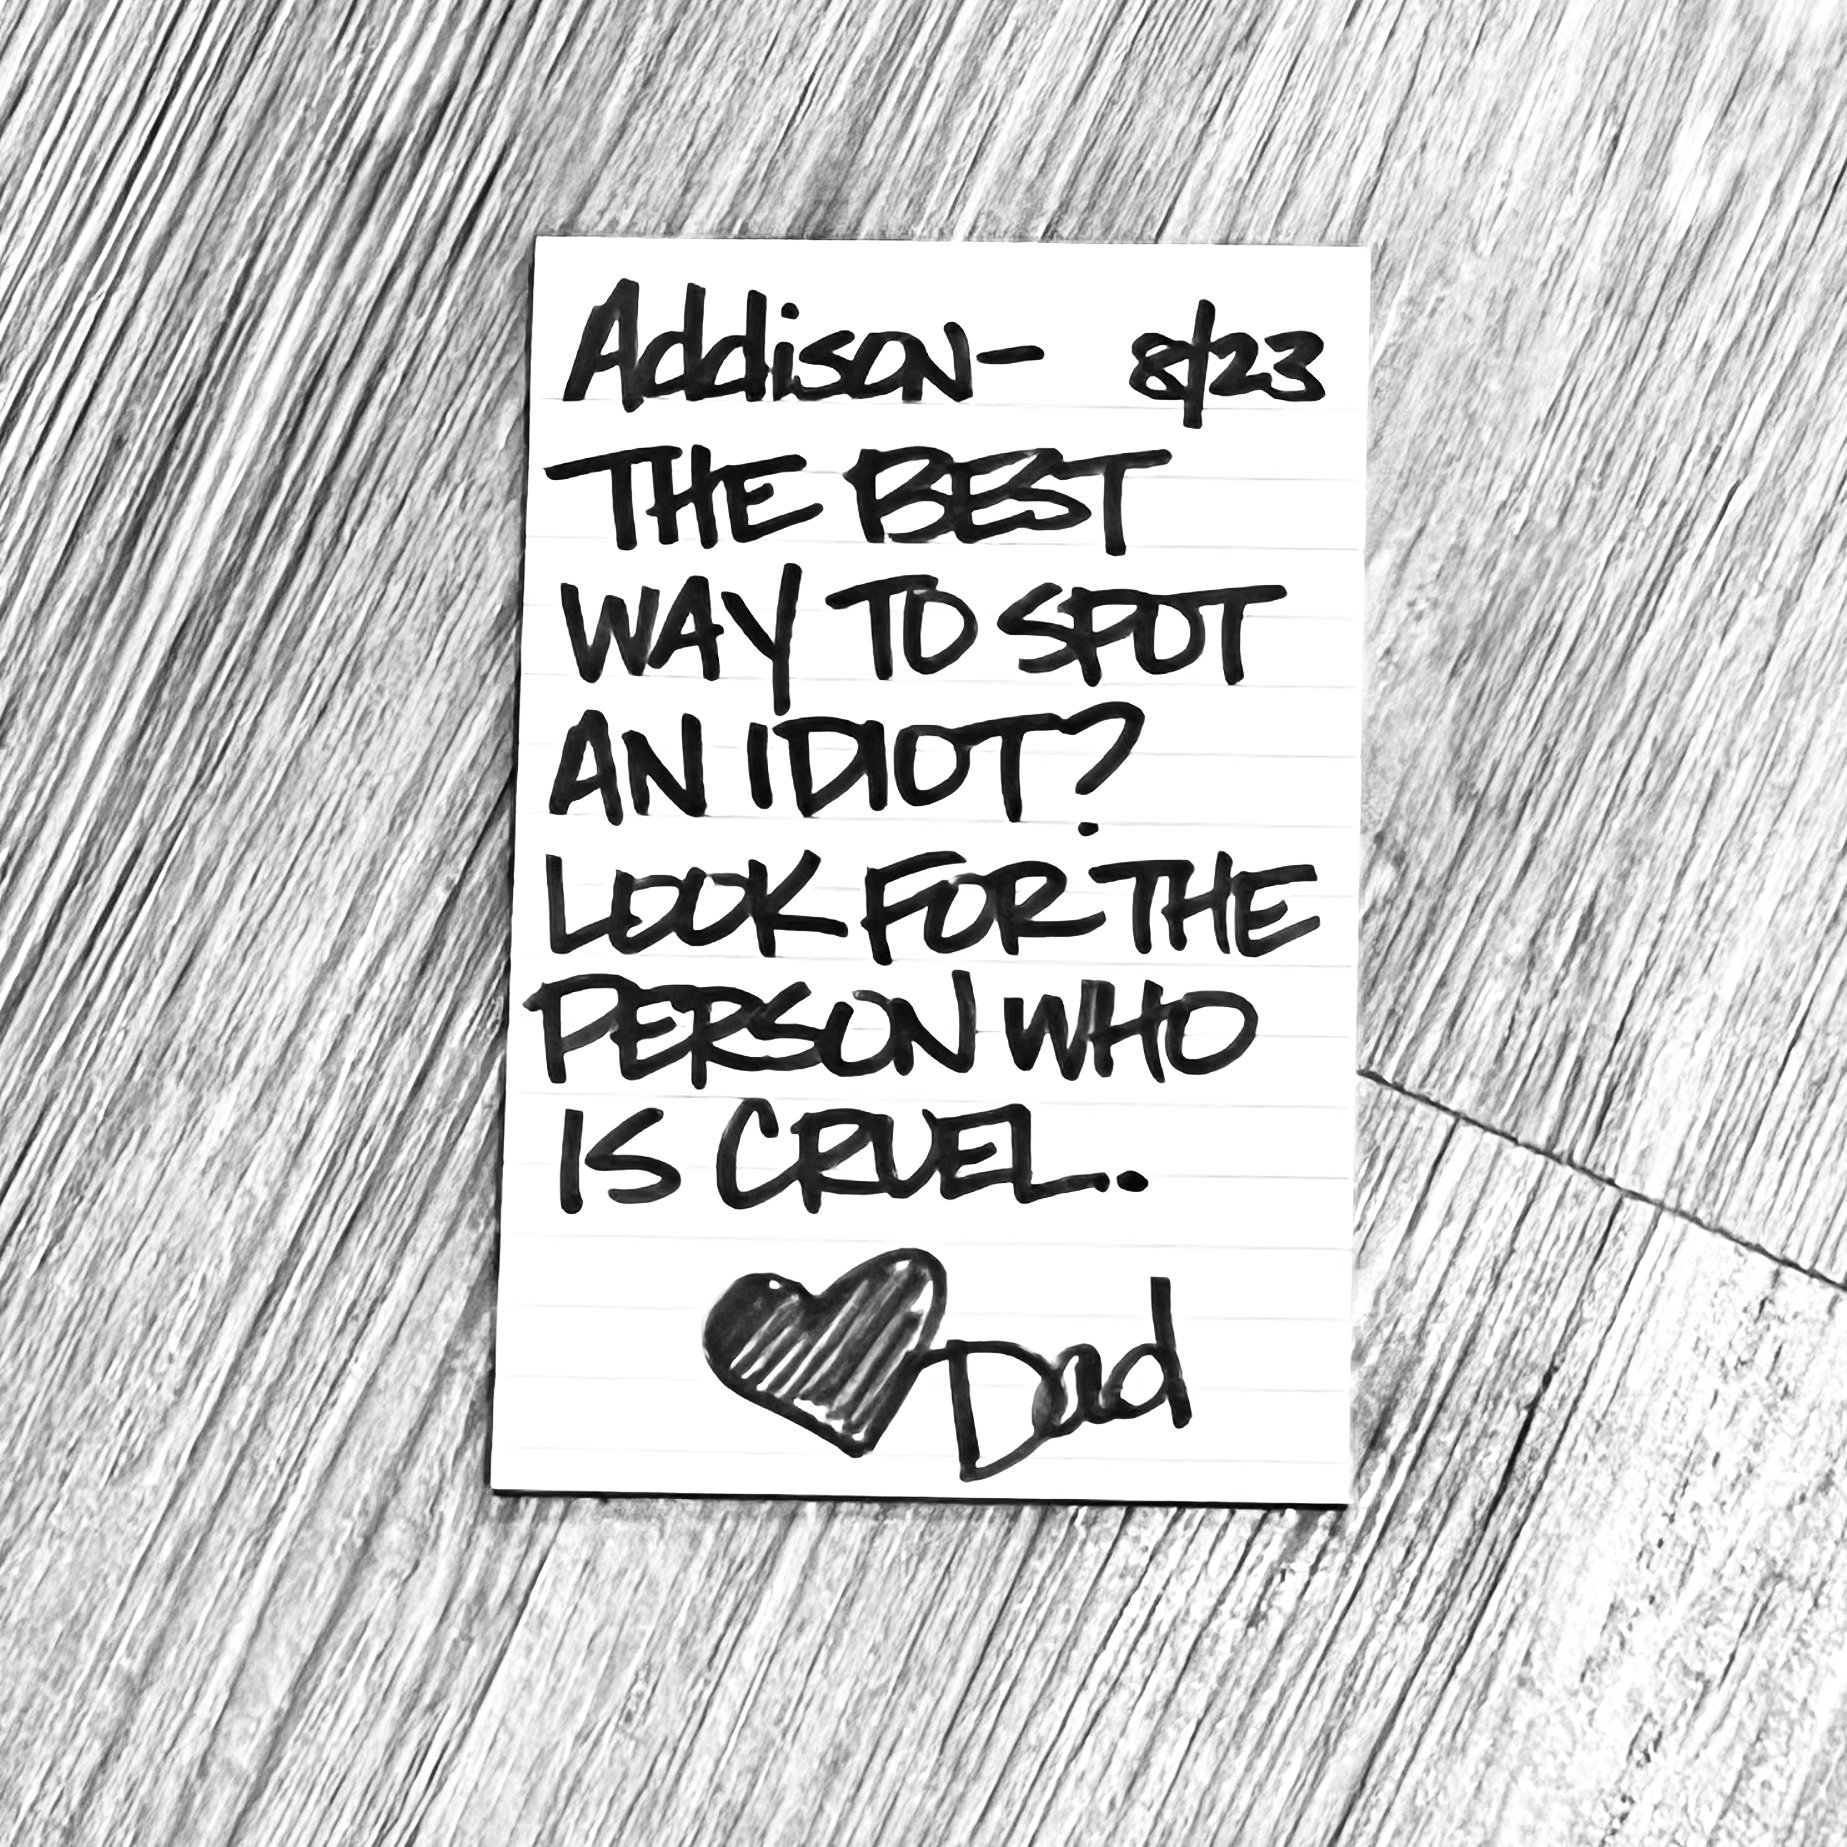 Addison- 8/23
THE BEST
WAY TO SPOT
AN IDIOT?
LOOK FOR THE
PERSON WHO
IS CRUEL.
Dad